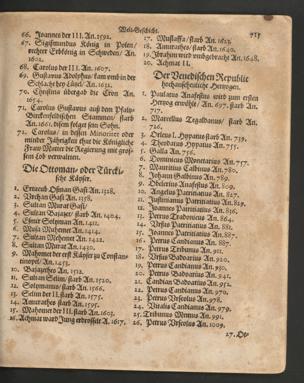 Welt-Geschicht.
66. Joannes der III. An. 1592.
67. Sigismundus König in Polen/
wehrer Erbkönig in Schweden/ An.
1602.
68. Carolus der III. An. 1607.
69. Gustavus Adolphus/ kam umb in der
Schlacht bey Lützel/ An. 1632.
70. Christina übergab die Cron An.
1654.
71. Carolus Gustavus auß dem Pfaltz-
Birckenfeldischen Stammen/ starb
An. 1660, disem folgt sein Sohn.
72. Carolus/ in dessen Minoritet oder
minder Jährigkeit thut die Königliche
Fraw Muter die Regierung mit gros-
sem Lob verwalten.
Die Ottoman- oder Türcki-
sche Käyser.
2. Orchan Gasi An. 1358.
3. Sultan Murat Gasi/
4. Sultan Bajazet/ starb An. 1404.
5. Emir Solyman An. 1412.
6. Musa Muhemet An. 1414.
7. Sultan Mehemet An. 1422.
8. Sultan Murat An. 1450.
9. Mahomet der erst Käyser zu Constan-
tinopel/ An. 1453.
10. Bajazethes An. 1512.
11. Sultan Selim/ starb An. 1520.
12. Solymannus/ starb An. 1566.
13. Selim der II. starb An. 1575.
14. Amurathes starb An. 1595.
15. Mahomet der III. starb An. 1603.
16. Achmat ward Jung erdrosselt A. 1617.
17. Mustaffa/ starb An. 1623.
18. Amurathes/ starb An. 1640.
19. Ibrahim ward umbgebracht An. 1648.
20. Achmat II.
Der Venedischen Republic
hochansehenliche Hertzogen.
1. Paulatius Anafestus wird zum ersten
Hertzog erwöhlt/ An. 697, starb An.
717.
2. Marcellus Tegalbanus/ starb An.
726.
3. Orleus I. Hypatus starb An. 739.
4. Theodatus Hypatus An. 755.
5. Galla An. 756.
6. Dominicus Monetarius An. 757.
7. Mauritius Calbinus An. 780.
8. Johann Galbinus An. 789.
9. Obelerius Anafestus An. 809.
10. Angelus Patritiatus An. 827.
11. Justinianus Patritiatus An. 829.
12. Joannes Patritiatus An. 836.
13. Petrus Tradonicus An. 864.
14. Ursus Patritiatus An. 881.
15. Joannes Patritiatus An. 887.
16. Petrus Candianus An. 887.
17. Petrus Tribunus An. 911.
18. Ursus Badoarius An. 920.
19. Petrus Candianus An. 930.
20. Petrus Badoarius An. 941.
21. Candian Badoarius An. 952.
22. Petrus Candianus An. 970.
23. Petrus Urseolus An. 978.
24. Vitalis Candianus An. 979.
25. Tribunus Memus An. 991.
26. Petrus Urseolus An. 1009.
27. Ot-